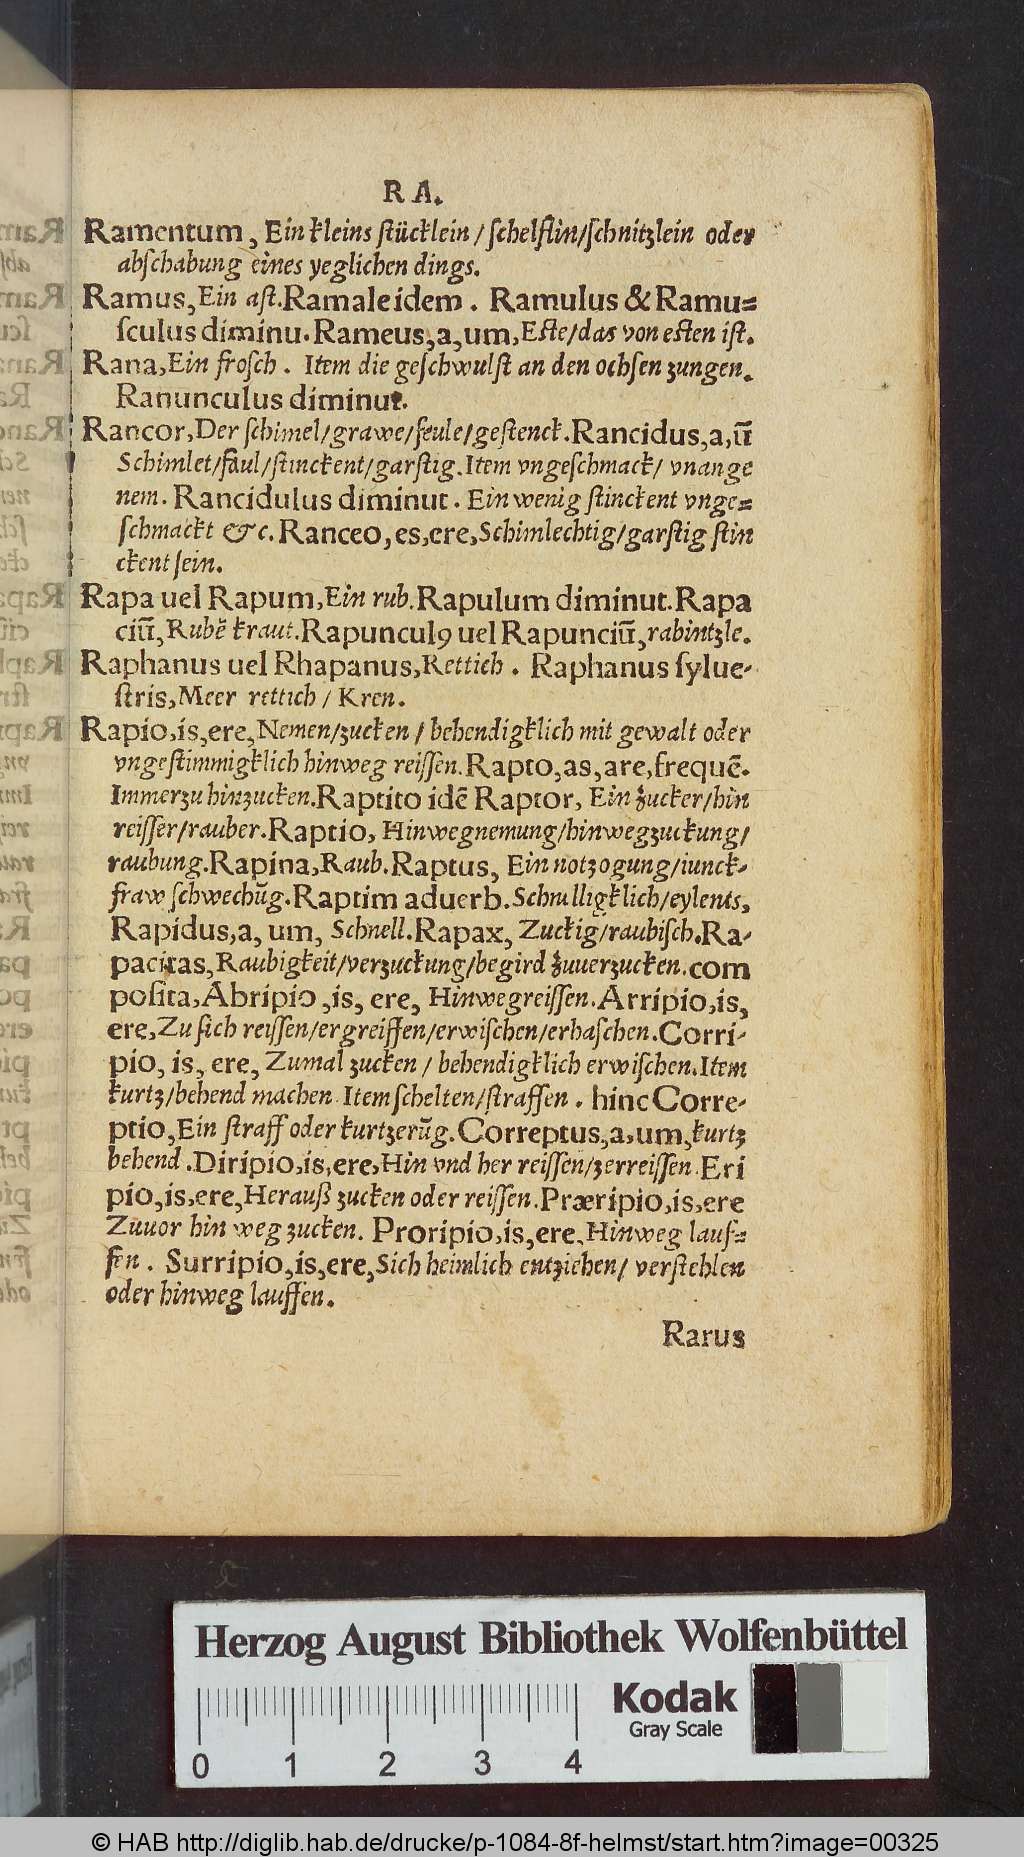 R A.
Ramentum, Ein kleins stücklein / schelflin/schnitzlein oder
abschabung eines yeglichen dings.
Ramus, Ein ast. Ramale idem. Ramulus & Ramu⸗
sculus diminu. Rameus, a, um, Este/das von esten ist.
Rana, Ein frosch. Item die geschwulst an den ochsen zungen.
Ranunculus diminut.
Rancor, Der schimel/grawe/feule/gestenck. Rancidus, a, ū
Schimlet/faul/stinckent/garstig. Item vngeschmack/ vnange
nem. Rancidulus diminut. Ein wenig stinckent vnge⸗
schmackt &c. Ranceo, es, ere, Schimlechtig/garstig stin
ckent sein.
Rapa uel Rapum, Ein rub. Rapulum diminut. Rapa
ciū, Rubē kraut. Rapuncul9 uel Rapunciū, rabintzle.
Raphanus uel Rhapanus, Rettich. Raphanus sylue-
stris, Meer rettich / Kren.
Rapio, is, ere, Nemen/zucken / behendigklich mit gewalt oder
vngestimmigklich hinweg reissen. Rapto, as, are, frequē.
Immerzu hinzucken. Raptito idē Raptor, Ein zucker/hin
reisser/rauber. Raptio, Hinwegnemung/hinwegzuckung/
raubung. Rapina, Raub. Raptus, Ein notzogung/iunck-
fraw schwechūg. Raptim aduerb. Schnelligklich/eylents,
Rapidus, a, um, Schnell. Rapax, Zuckig/raubisch. Ra-
pacitas, Raubigkeit/verzuckung/begird zuuerzucken. com
posita, Abripio, is, ere, Hinwegreissen. Arripio, is,
ere, Zu sich reissen/ergreiffen/erwischen/erhaschen. Corri-
pio, is, ere, Zumal zucken / behendigklich erwischen. Item
kurtz/behend machen. Item schelten/straffen. hinc Corre-
ptio, Ein straff oder kurtzerūg. Correptus, a, um, kurtz
behend. Diripio, is, ere, Hin vnd her reissen/zerreissen. Eri
pio, is, ere, Herauß zucken oder reissen. Præripio, is, ere
Zuuor hin weg zucken. Proripio, is, ere, Hinweg lauf⸗
fen. Surripio, is, ere, Sich heimlich entziehen/ verstehlen
oder hinweg lauffen.
Rarus
Herzog August Bibliothek Wolfenbüttel
Kodak
Gray Scale
0 1 2 3 4
© HAB http://diglib.hab.de/drucke/p-1084-8f-helmst/start.htm?image=00325